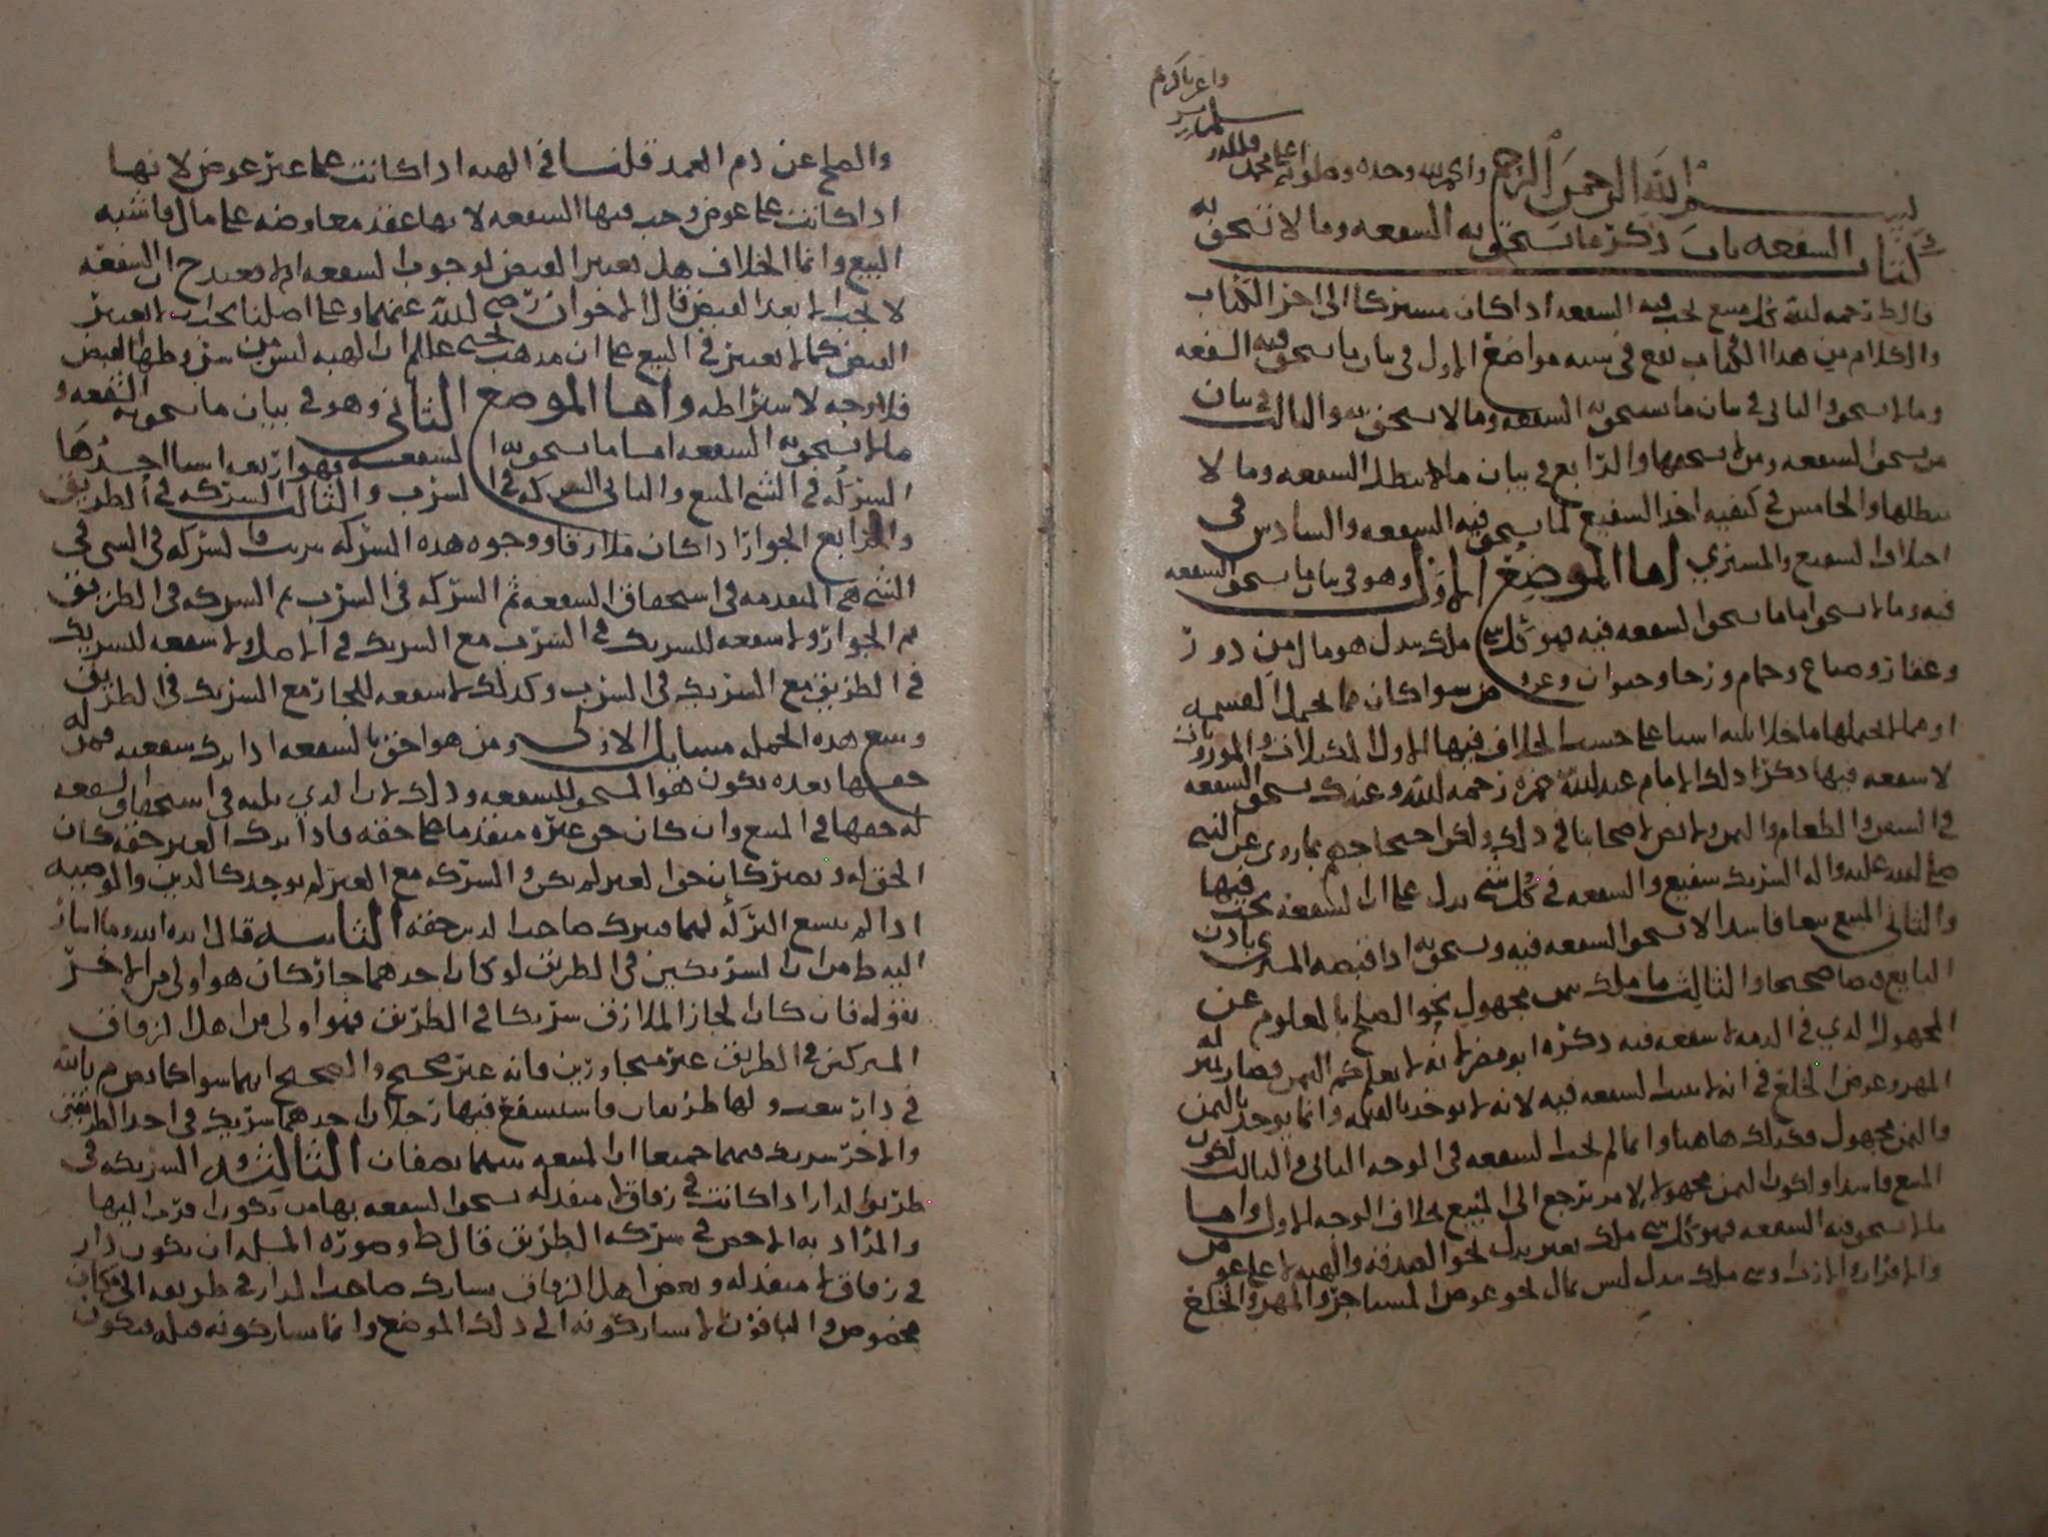 بسم الله الرحمن الرحيم والحمد لله وحده وصلواته على محمد
كتاب الشفعه باب ذكر ما تستحق به الشفعه وما لا تستحق به
قال ط رحمه الله كل مبيع تجب فيه الشفعه اذا كان مشتركا الى اخر الكتاب
والكلام من هذا الكتاب يقع في سته مواضع الاول في بيان ما يستحق فيه الشفعه
وما لا يستحق والثاني في بيان ما يستحق به الشفعه وما لا يستحق به والثالث في بيان
من يستحق الشفعه ومن لا يستحقها والرابع في بيان ما يبطل الشفعه وما لا
يبطلها والخامس في كيفيه اخذ الشفيع لما يستحق فيه الشفعه والسادس في
اختلاف الشفيع والمشتري اما الموضع الاول وهو في بيان ما يستحق الشفعه
فيه وما لا يستحق اما ما يستحق الشفعه فيه فهو كل شي ملك ببدل هو مال من دور
وعقار وضياع وحمام ورحا وحيوان وعروض سوا كان مما يحتمل القسمه
او مما لا يحتملها ما خلا ثلثه اشيا على حسب الخلاف فيها الاول المكيلات والموزونات
لا شفعه فيها ذكر ذلك الامام عبدالله بن حمزه رحمه الله وعندنا يستحق الشفعه
في السمن والطعام ولا نص لاصحابنا في ذلك ولكن احتجاجهم بما روي عن النبي
صلى الله عليه واله الشريك شفيع والشفعه في كل شي يدل على ان الشفعه تجب فيها
والثاني المبيع بيعا فاسدا لا تستحق الشفعه فيه ويستحق به اذا قبضه المشتري باذن
البايع قبضا صحيحا والثالث ما ملك بثمن مجهول نحو الصلح بالمعلوم عن
المجهول الذي في الذمه لا شفعه فيه ذكره ابو مضر لانه لا يعلم كم الثمن فصار بمنزله
المهر وعوض الخلع في انه لا يثبت الشفعه فيه لانه لا يوخذ بالقيمه وانما يوخذ بالثمن
والثمن مجهول فكذلك هاهنا وانما لم تجب الشفعه في الوجه الثاني والثالث لكون
المبيع فاسدا ولكون الثمن مجهولا لامر يرجع الى المبيع بخلاف الوجه الاول واما
ما لا يستحق فيه الشفعه فهو كل شي ملك بغير بدل نحو الصدقه والهبه لا على عوض
والاقرار والارث وشي ملك ببدل ليس بمال نحو عوض المستاجر والمهر والخلع
والصلح عن دم العمد قلنا في الهبه اذا كانت على غير عوض لانها
اذا كانت على عوض وجب فيها الشفعه لانها عقد معاوضه على مال فاشبه
البيع وانما الخلاف هل يعتبر القبض لوجوب الشفعه ام لا فعند ح ان الشفعه
لا تجب الا بعد القبض قال الاخوان رضي الله عنهما وعلى اصلنا يجب الا يعتبر
القبض كما لا يعتبر في البيع على ان مذهب يحيى عليلم ان الهبه ليس من شروطها القبض
فلا وجه لاشتراطه واما الموضع الثاني وهو في بيان ما يستحق به الشفعه و
ما لا يستحق به الشفعه اما ما يستحق به الشفعه فهو اربعه اشيا احدها
الشركه في الشي المبيع والثاني الشركه في الشرب والثالث الشركه في الطريق
والرابع الجوار اذا كان ملازقا ووجوه هذه الشركه مرتبه فالشركه في الشي في
الشي هي المتقدمه في استحقاق الشفعه ثم الشركه في الشرب ثم الشركه في الطريق
ثم الجوار ولا شفعه للشريك في الشرب مع الشريك في الاصل ولا شفعه للشريك
في الطريق مع الشريك في الشرب وكذلك لا شفعه للجار مع الشريك في الطريق
ويتبع هذه الجمله مسايل الاولى ومن هو احق بالشفعه اذا ترك شفعته فمن له
حق فيها بعده يكون هو المستحق للشفعه وذلك لان الذي يليه في استحقاق الشفعه
له حق فيها في المبيع وان كان حق غيره متقدما على حقه فاذا ترك الغير حقه كان
الحق له ويصير كان حق الغير لم يكن والشركه مع الغير لم يوجد كالدين والوصيه
اذا لم يتسع التركه لهما فيترك صاحب الدين حقه الثانيه قال ايده الله وما اشار
اليه ط من ان الشريكين في الطريق لو كان احدهما جار كان هو اولى من الاخر
بقوله فان كان الجار الملازق شريكا في الطريق فهو اولى من اهل الزقاق
المشتركين في الطريق غير متجاورين فانه غير صحيح والصحيح انهما سوا كما نص م بالله
في دار بيعت ولها طريقان فاستشفع فيها رجلان احدهما شريك في احد الطريقين
والاخر شريك فيهما جميعا ان الشفعه بينهما نصفان الثالثه الشريك في
طريق الدار اذا كانت في زقاق لا منفذ له يستحق الشفعه بها من يكون اقرب اليها
والمراد به الاخص في شركه الطريق قال ط وصوره المسله ان يكون دار
في زقاق لا منفذ له وبعض اهل الزقاق يشارك صاحب الدار في طريقه الى مكان
مخصوص والباقون لا يشاركونه الى ذلك الموضع وانما يشاركونه قبله فيكون